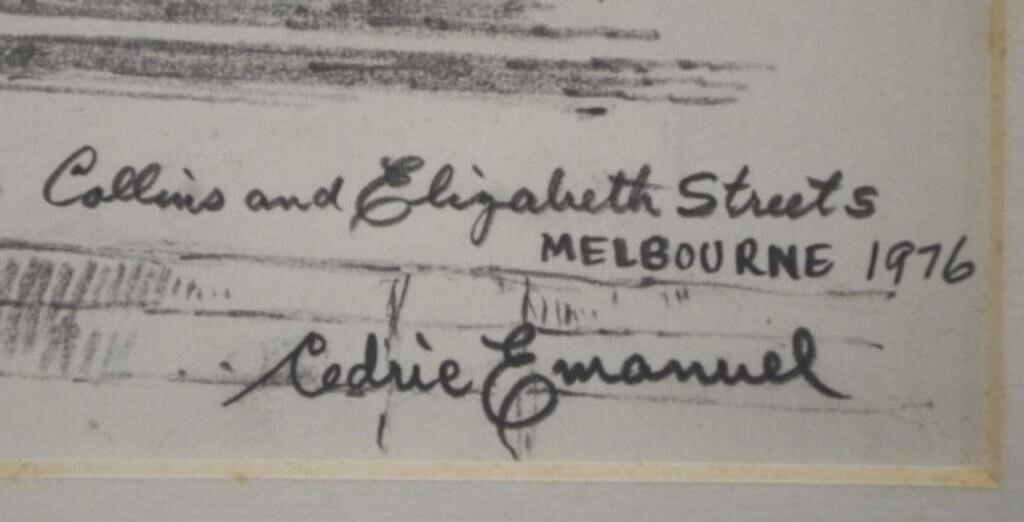 Collins and Elizabeth Streets
MELBOURNE 1976
Cedric Emanuel